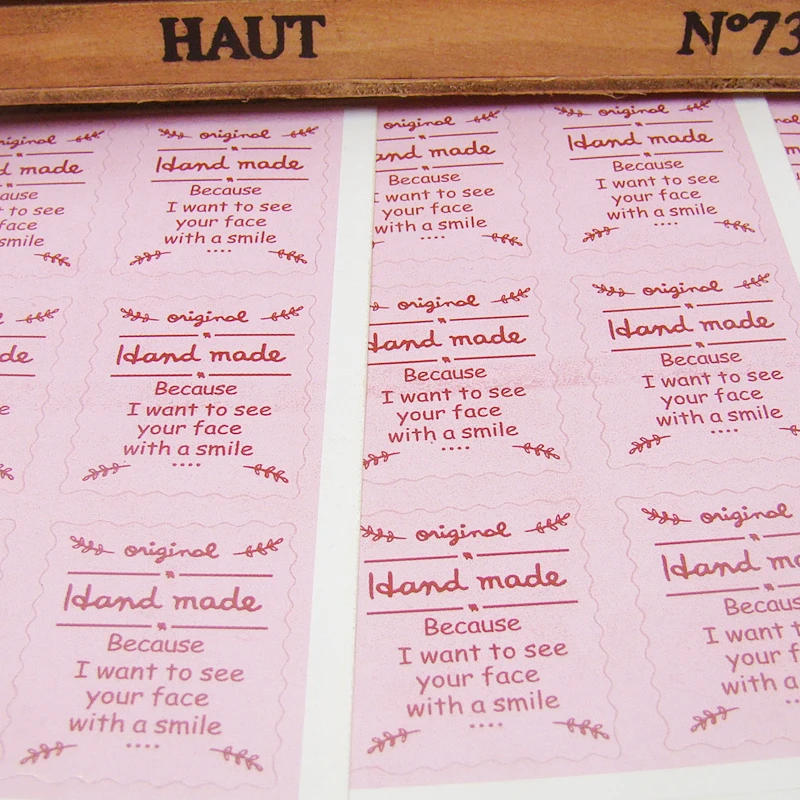 HAUT
N°73
original
Hand made
Because
I want to see
your face
with a smile
....
original
Hand made
Because
I want to see
your face
with a smile
....
original
Hand made
Because
I want to see
your face
with a smile
....
original
Hand made
Because
I want to see
your face
with a smile
....
original
Hand made
Because
I want to see
your face
with a smile
....
original
Hand made
Because
I want to see
your face
with a smile
....
original
Hand made
Because
I want to see
your face
with a smile
....
original
Hand made
Because
I want to see
your face
with a smile
....